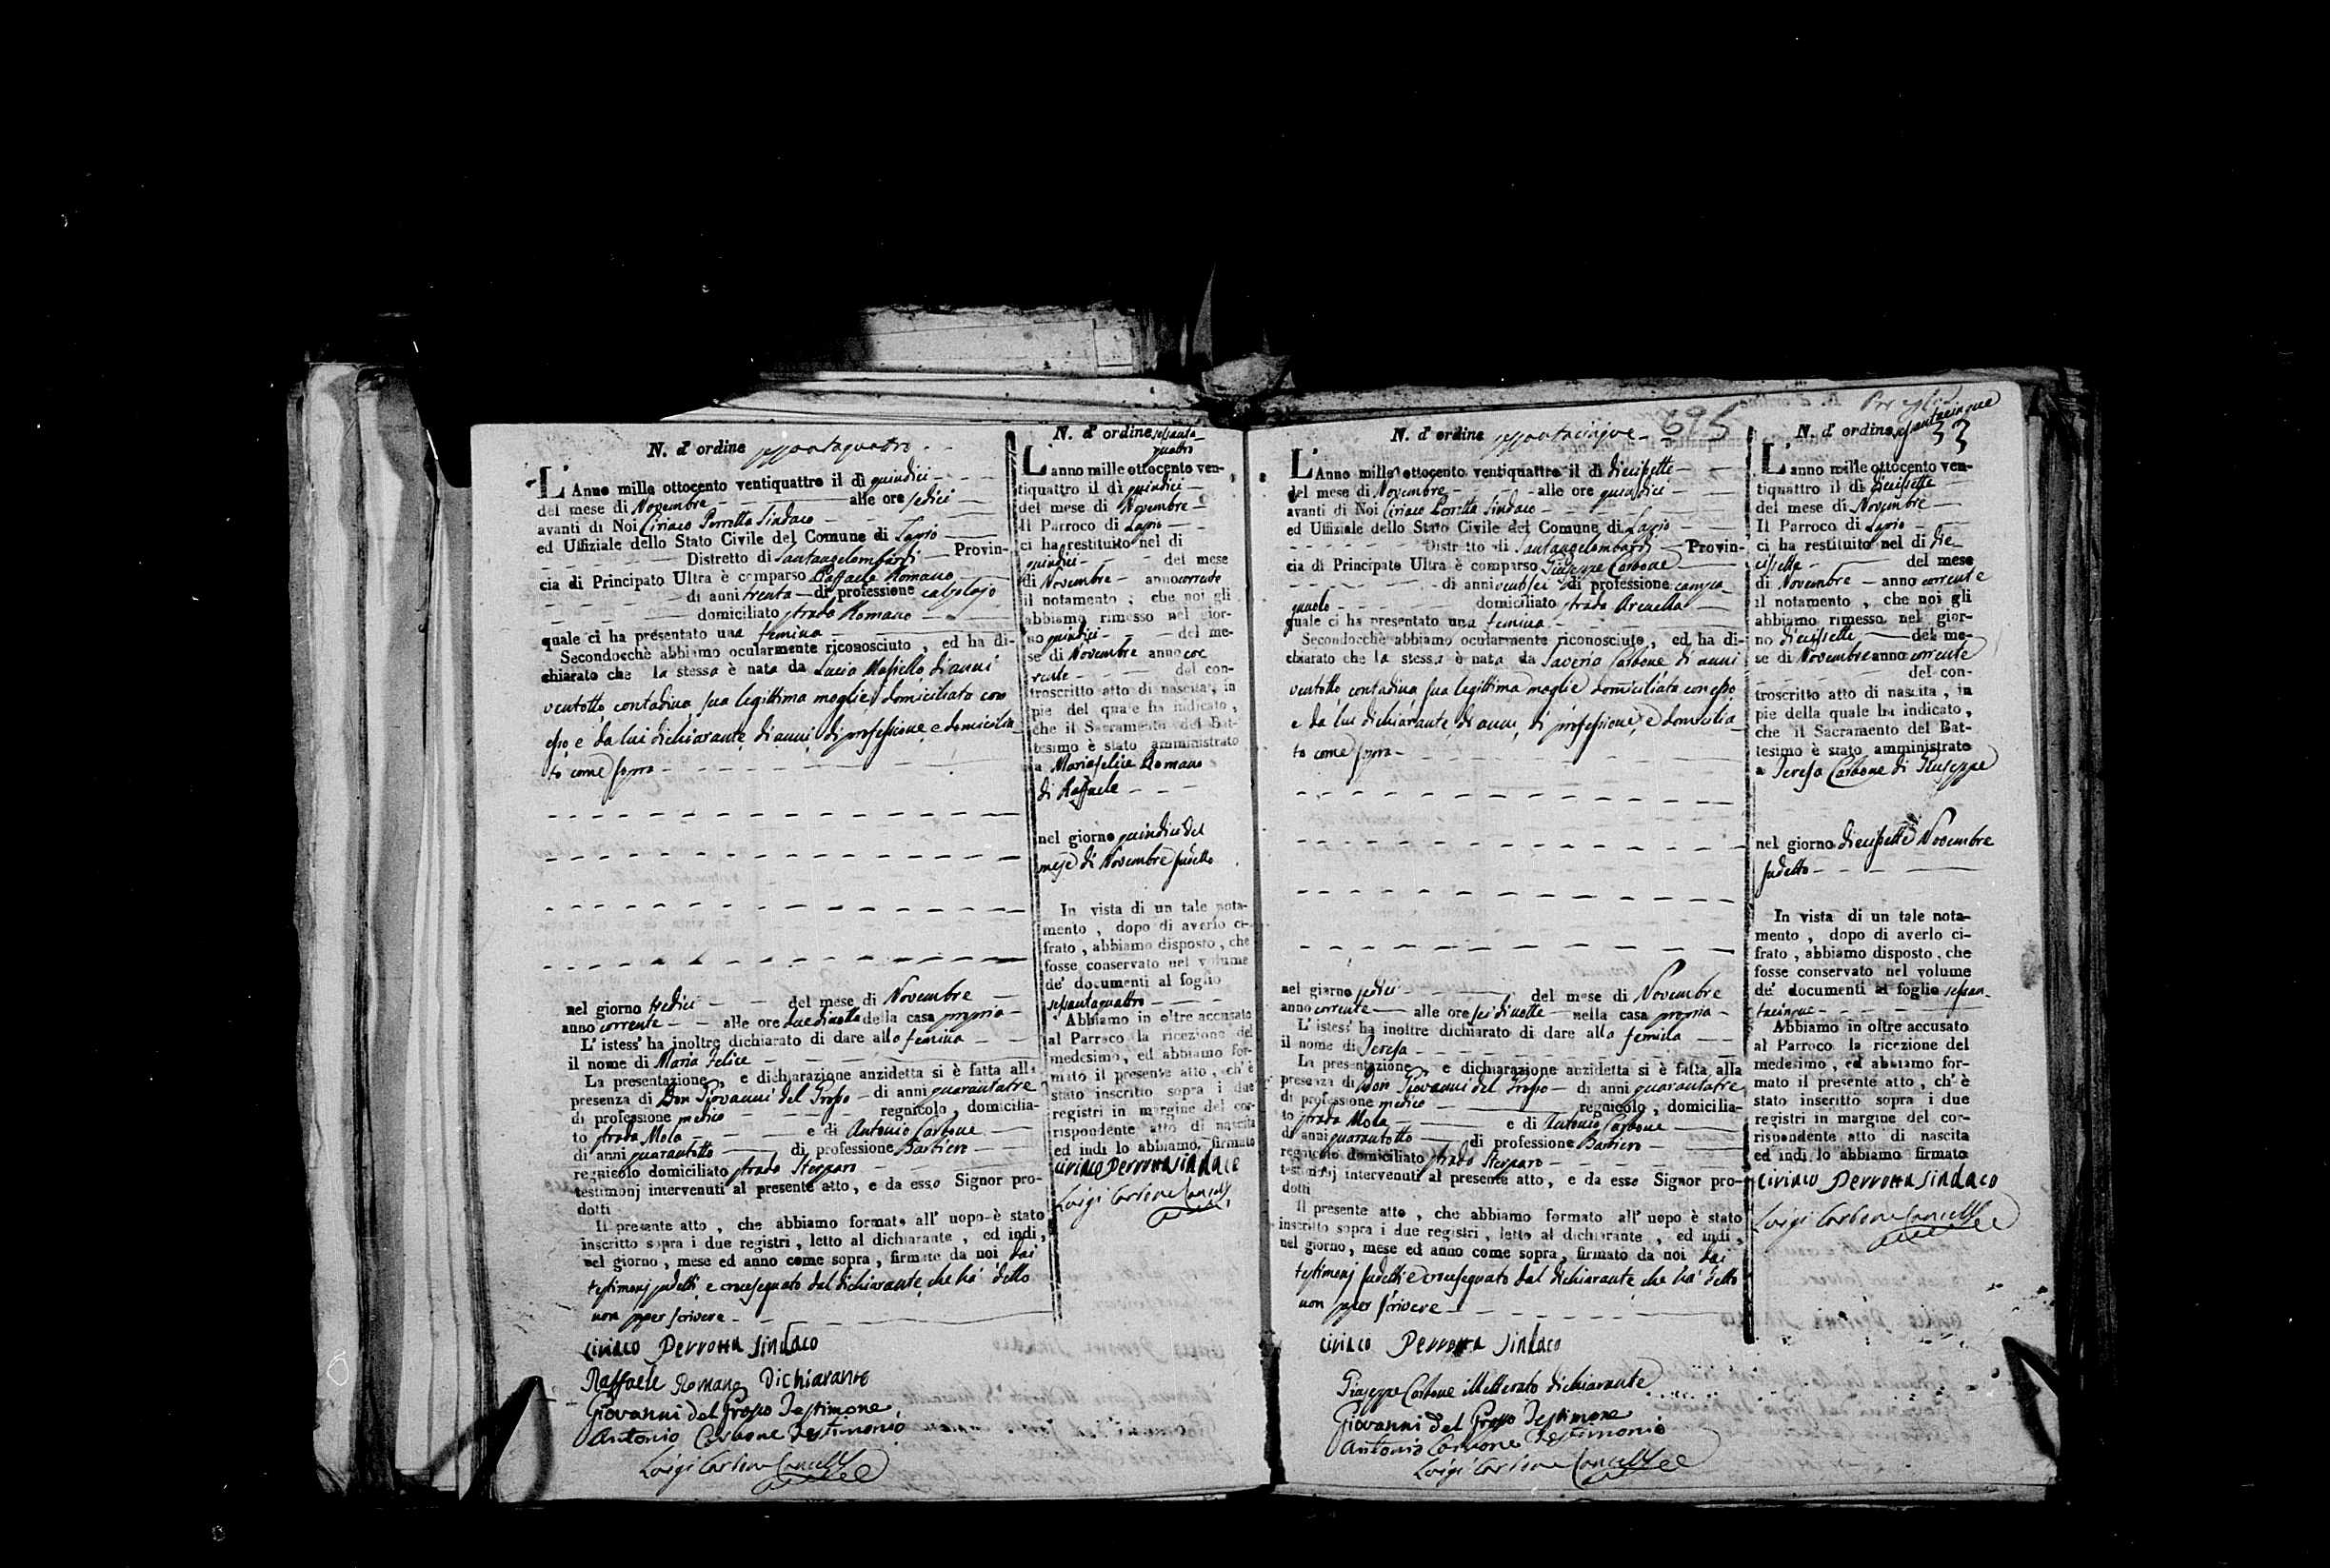 N. d' ordine sessantaquattro
L' Anno mille ottocento ventiquattro il dì quindici
del mese di Novembre alle ore sedici
avanti di Noi Ciriaco Perrotta Sindaco
ed Uffiziale dello Stato Civile del Comune di Lapio
Distretto di Santangelombardi Provin-
cia di Principato Ultra è comparso Raffaele Romano
di anni trenta di professione calzolajo
domiciliato strada Romano
quale ci ha presentato una femina
Secondocchè abbiamo ocularmente riconosciuto , ed ha di-
chiarato che la stessa è nata da Lucia Masiello di anni
ventotto contadina sua legittima moglie domiciliata con
esso e da lui dichiarante di anni di professione e domicilia
to come sopra
nel giorno tredici del mese di Novembre
anno corrente alle ore due di notte della casa propria
L' istess' ha inoltre dichiarato di dare alla femina
il nome di Maria Felice
La presentazione , e dichiarazione anzidetta si è fatta alla
presenza di Don Giovanni del Grosso di anni quarantatre
di professione medico regnicolo , domicilia-
to strada Mola e di Antonio Carbone
di anni quarantotto di professione Barbiere
regnicolo domiciliato strada Sterparo
testimonj intervenuti al presente atto , e da esso Signor pro-
dotti
Il presente atto , che abbiamo formato all' uopo è stato
inscritto sopra i due registri , letto al dichiarante , ed indi ,
nel giorno , mese ed anno come sopra , firmato da noi dai
testimonj sudetti e crocesegnato dal dichiarante che ha detto
non saper scrivere
Ciriaco Perrotta Sindaco
Raffaele Romano Dichiarante
Giovanni del Grosso Testimone
Antonio Carbone Testimonio
Luigi Carbone Cancell
N. d' ordine sessanta
quattro
L' anno mille ottocento ven-
tiquattro il dì quindici
del mese di Novembre
Il Parroco di Lapio
ci ha restituito nel dì
quindici del mese
di Novembre anno corrente
il notamento , che noi gli
abbiamo rimesso nel gior-
no quindici del me-
se di Novembre anno cor
rente del con-
troscritto atto di nascita , in
pie del quale ha indicato ,
che il Sacramento del Bat-
tesimo è stato amministrato
a Mariafelice Romano
di Raffaele
nel giorno quindici del
mese di Novembre sudetto
In vista di un tale nota-
mento , dopo di averlo ci-
frato , abbiamo disposto , che
fosse conservato nel volume
de' documenti al foglio
sessantaquattro
Abbiamo in oltre accusato
al Parroco la ricezione del
medesimo , ed abbiamo for-
mato il presente atto , ch' è
stato inscritto sopra i due
registri in margine del cor-
rispondente atto di nascita
ed indi lo abbiamo firmato
Ciriaco Perrotta Sindaco
Luigi Carbone Cancell
695
N. d' ordine sessantacinque
L' Anno mille ottocento ventiquattro il dì diecisette
del mese di Novembre alle ore quindici
avanti di Noi Ciriaco Perrotta Sindaco
ed Uffiziale dello Stato Civile del Comune di Lapio
Distretto di Santangelombardi Provin-
cia di Principato Ultra è comparso Giuseppe Carbone
di anni ventisei di professione campa
gnuolo domiciliato strada Arenella
quale ci ha presentato una femina
Secondocchè abbiamo ocularmente riconosciuto , ed ha di-
chiarato che la stessa è nata da Saveria Carbone di anni
ventotto contadina sua legittima moglie domiciliata con esso
e da lui dichiarante di anni, di professione, e domicilia
to come sopra
nel giorno sedici del mese di Novembre
anno corrente alle ore sei di notte nella casa propria
L' istess' ha inoltre dichiarato di dare alla femina
il nome di Teresa
La presentazione , e dichiarazione anzidetta si è fatta alla
presenza di Don Giovanni del Grosso di anni quarantatre
di professione medico regnicolo , domicilia-
to strada Mola e di Antonio Carbone
di anni quarantotto di professione Barbiero
regnicolo domiciliato strada Sterparo
testimonj intervenuti al presente atto , e da esso Signor pro-
dotti
Il presente atto , che abbiamo formato all' uopo è stato
inscritto sopra i due registri , letto al dichiarante , ed indi ,
nel giorno , mese ed anno come sopra , firmato da noi dai
testimonj sudetti e crocesegnato dal dichiarante che ha detto
non saper scrivere
Ciriaco Perrotta Sindaco
Giuseppe Carbone illetterato dichiarante
Giovanni del Grosso Testimone
Antonio Carbone Testimonio
Luigi Carbone Cancell
33
N. d' ordine sessantacinque
L' anno mille ottocento ven-
tiquattro il dì diecisette
del mese di Novembre
Il Parroco di Lapio
ci ha restituito nel dì die
cisette del mese
di Novembre anno corrente
il notamento , che noi gli
abbiamo rimesso nel gior-
no diecisette del me-
se di Novembre anno corrente
del con-
troscritto atto di nascita , in
pie della quale ha indicato ,
che il Sacramento del Bat-
tesimo è stato amministrato
a Teresa Carbone di Giuseppe
nel giorno diecisette Novembre
sudetto
In vista di un tale nota-
mento , dopo di averlo ci-
frato , abbiamo disposto , che
fosse conservato nel volume
de' documenti al foglio sessan-
tacinque
Abbiamo in oltre accusato
al Parroco la ricezione del
medesimo , ed abbiamo for-
mato il presente atto , ch' è
stato inscritto sopra i due
registri in margine del cor-
rispondente atto di nascita
ed indi lo abbiamo firmato
Ciriaco Perrotta Sindaco
Luigi Carbone Cancell